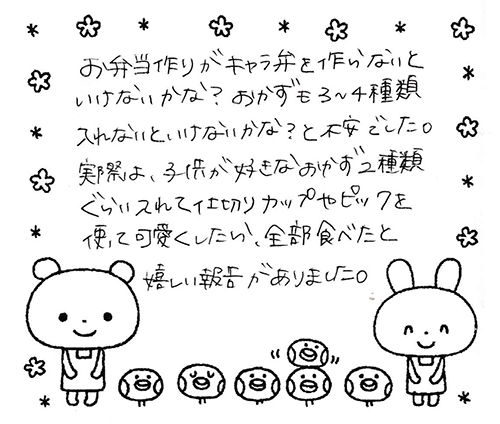 お弁当作りがキャラ弁を作らないと
いけないかな？おかずも3〜4種類
入れないといけないかな？と不安でした。
実際は、子供が好きなおかず2種類
ぐらい入れて仕切りカップやピックを
使って可愛くしたら、全部食べたと
嬉しい報告がありました。